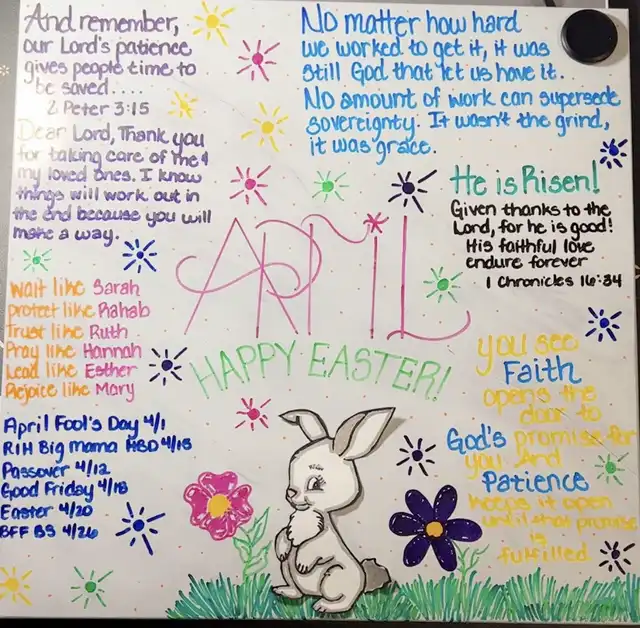 And remember,
our Lord's patience
gives people time to
be saved....
2 Peter 3:15
Dear Lord, Thank you
for taking care of me &
my loved ones. I know
things will work out in
the end because you will
make a way.
No matter how hard
we worked to get it, it was
still God that let us have it.
No amount of work can supersede
sovereignty. It wasn't the grind,
it was grace.
He is Risen!
Given thanks to the
Lord, for he is good!
His faithful love
endure forever
1 Chronicles 16:34
APRIL
HAPPY EASTER!
Wait like Sarah
protect like Rahab
Trust like Ruth
Pray like Hannah
Lead like Esther
Rejoice like Mary
April Fool's Day 4/1
RIH Big Mama HBD 4/15
Passover 4/12
Good Friday 4/18
Easter 4/20
BFF BS 4/26
you see
Faith
opens the
door to
God's promise for
you. And
Patience
keeps it open
until that promise
is
fulfilled